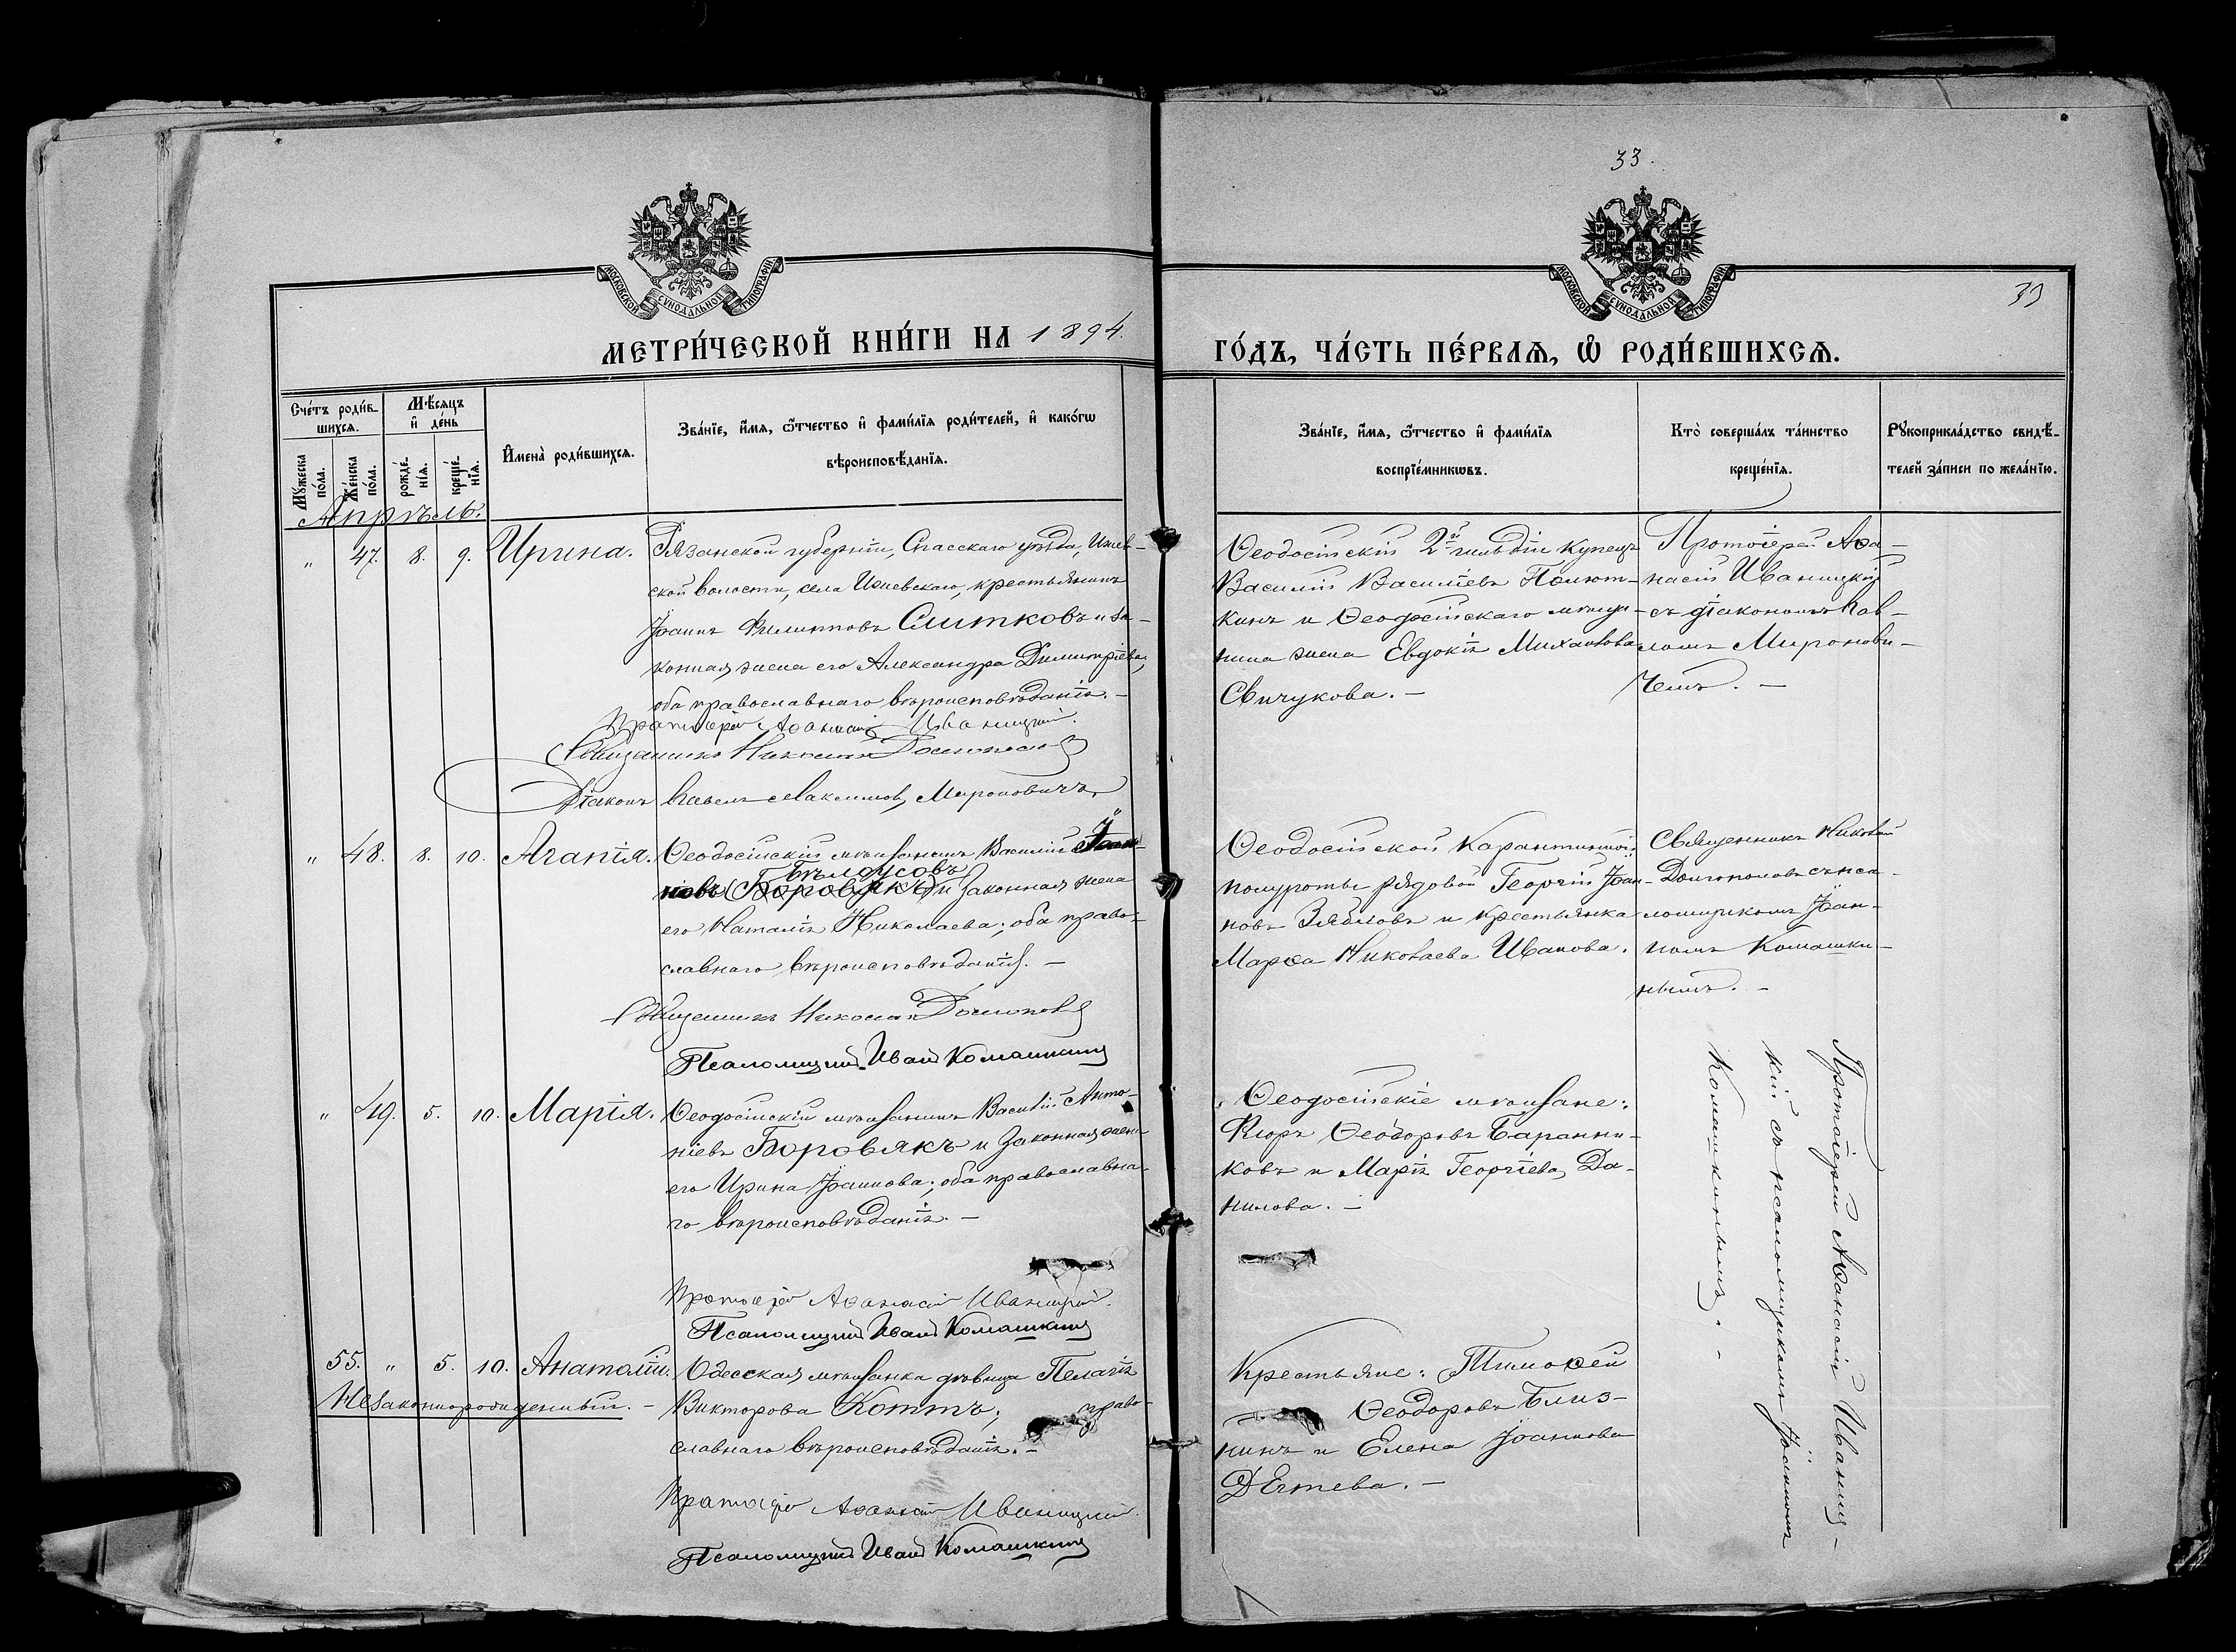 33.
МОСКОВСКОЙ СѴНОДАЛЬНОЙ ТИПОГРАФІИ
МОСКОВСКОЙ СѴНОДАЛЬНОЙ ТИПОГРАФІИ
33
МЕТРИ́ЧЕСКОЙ КНИ́ГИ НА 1894.
ГО́ДЪ, ЧА́СТЬ ПЕ́РВАЯ, Ѽ РОДИ́ВШИХСЯ.
Сче́тъ роди́в-
шихся.
Мѣ́сяцъ
и҆ де́нь
Мꙋ́жеска
по́ла.
Же́нска
по́ла.
рожде́-
нїя.
креще́-
нїя.
И҆мена̀ роди́вшихся.
Зва́нїе, и҆́мя, ѻ҆́тчество и҆ фами́лїя роди́телей, и҆ како́гѡ
вѣроисповѣ́данїя.
Зва́нїе, и҆́мя, ѻ҆́тчество и҆ фами́лїя
воспрїе́мникѡвъ.
Кто̀ соверша́лъ та́инство
креще́нїя.
Рꙋкоприкла́дство свидѣ́-
телей за́писи по жела́нїю.
Апрѣль.
" 47. 8. 9. Ирина.
Рязанской губерніи, Спасскаго уѣзда, Ижев-
ской волости, села Ижевскаго, крестьянинъ
Іоаннъ Филипповъ Ситковъ и за-
конная жена его Александра Димитріева,
оба православнаго вѣроисповѣданія. –
Протоіерей Аѳанасій Иваницкій.
Священникъ Николай Долгополов
Діаконъ Павелъ Максимовъ Мироновичъ
Ѳеодосійскій 2й гильдіи купецъ
Василій Васильевъ Полют-
кинъ и Ѳеодосійскаго мѣща-
нина жена Евдокія Михаилова
Свичукова. –
Протоіерей Аѳа-
насій Иваницкій
съ діакономъ Пав-
ломъ Миронови-
чемъ. –
" 48. 8. 10. Агапія.
Ѳеодосійскій мѣщанинъ Василій
Бѣлоусовъ
новъ (Боровякъ) и законная жена
его Наталія Николаева; оба право-
славнаго вѣроисповѣданія. –
Священникъ Николай Долгополов
Псаломщикъ Иван Комашкинъ
Ѳеодосійской Карантинной
полуроты рядовой Георгій Іоан-
новъ Зябловъ и крестьянка
Марѳа Николаева Иванова.
Священникъ Николай
Долгополовъ съ пса-
ломщикомъ Іоан-
номъ Комашки-
нымъ. –
" 49. 5. 10. Марія.
Ѳеодосійскій мѣщанинъ Василій Анто-
ніевъ Боровякъ и законная жена
его Ирина Іоаннова; оба православна-
го вѣроисповѣданія. –
Протоіерей Аѳанасій Иваницкій.
Псаломщикъ Иван Комашкинъ
Ѳеодосійскіе мѣщане:
Киръ Ѳеодоровъ Баранни-
ковъ и Марія Георгіева Да-
нилова. –
Протоіерей Аѳанасій Иваниц-
кій съ псаломщикомъ Іоанномъ
Комашкинымъ. –
55. " 5. 10. Анатолій.
Незаконнорожденный. –
Одесская мѣщанка дѣвица Пелагія
Викторова Коттъ; право-
славнаго вѣроисповѣданія. –
Протоіерей Аѳанасій Иваницкій.
Псаломщикъ Иван Комашкинъ
Крестьяне: Тимоѳей
Ѳеодоровъ Близ-
нинъ и Елена Іоаннова
Дѣгтева. –